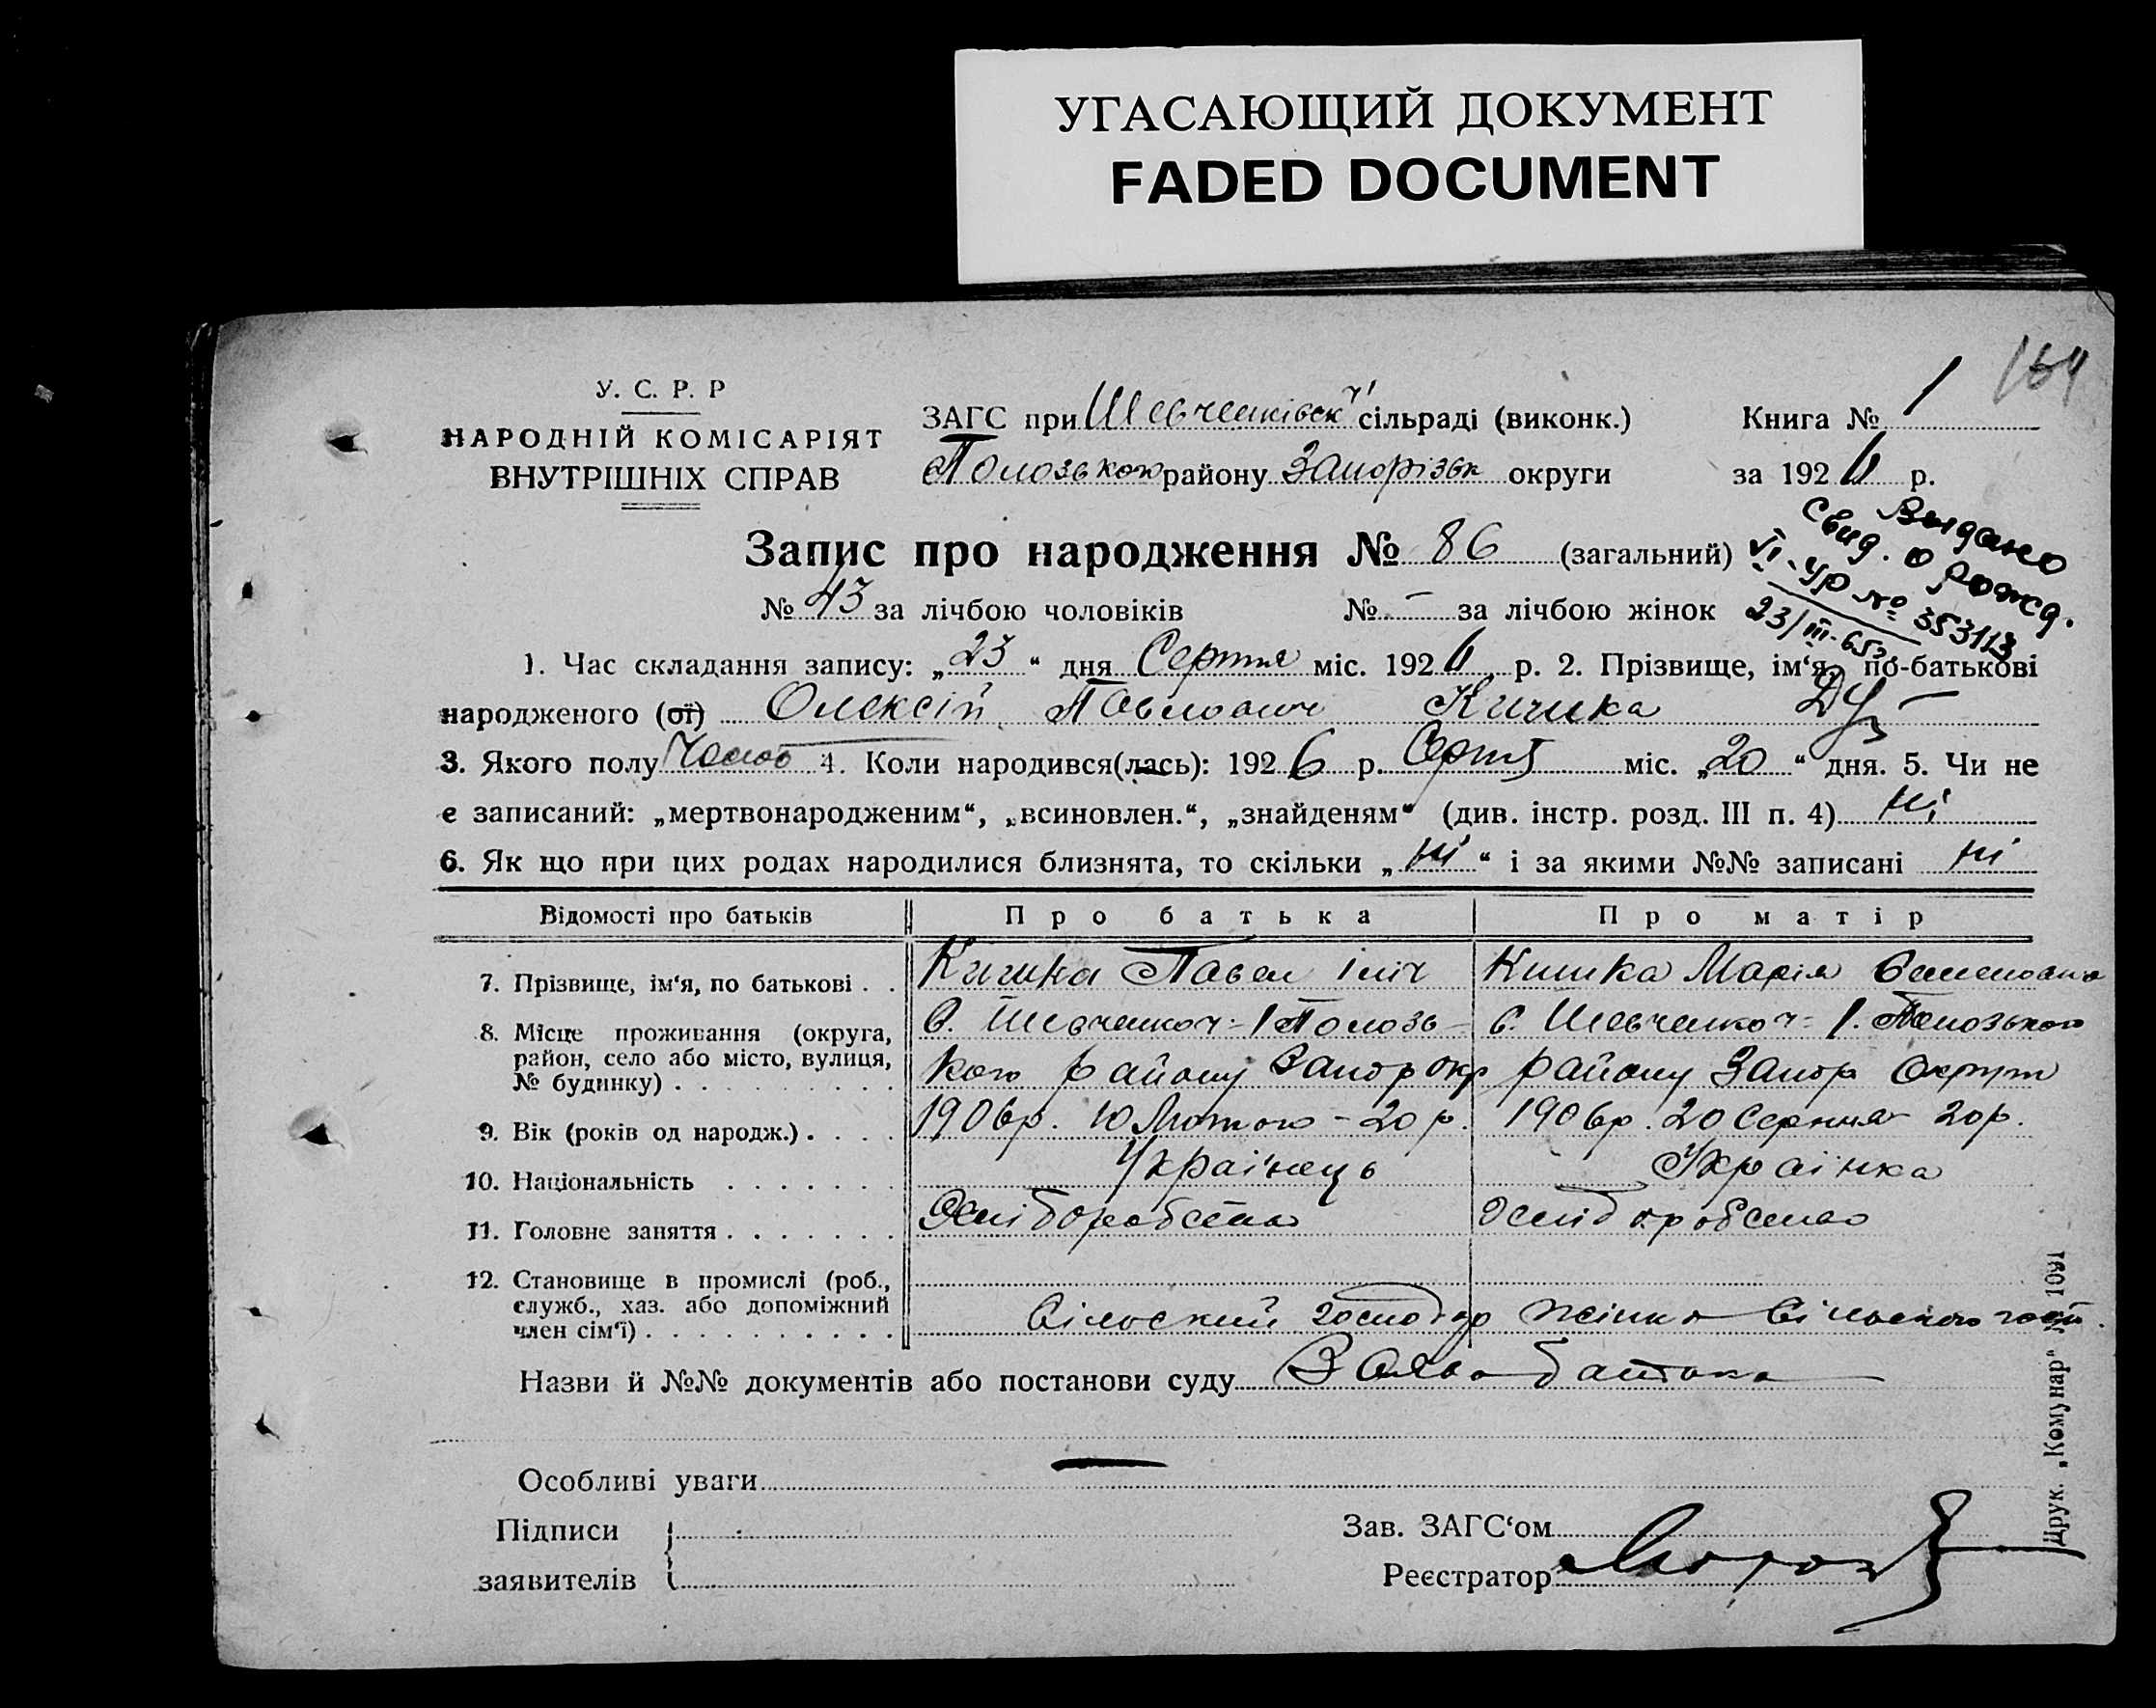 УГАСАЮЩИЙ ДОКУМЕНТ
FADED DOCUMENT
164
У. С. Р. Р
НАРОДНІЙ КОМІСАРІЯТ
ВНУТРІШНІХ СПРАВ
ЗАГС при Шевченківск сільраді (виконк.)
Полозького району Запорізьк округи
Книга № 1
за 1926 р.
Запис про народження № 86 (загальний)
№ 43 за лічбою чоловіків № – за лічбою жінок
Выдано
свид. о рожд.
VI-УР № 353113
23/III-65г.
1. Час складання запису: „23“ дня Серпня міс. 1926 р. 2. Прізвище, ім‘я, по-батькові
народженого (ої) Олексій Павлович Кичика
3. Якого полу Чолов 4. Коли народився(лась): 1926 р. Серпня міс. „20“ дня. 5. Чи не
є записаний: „мертвонародженим“, „всиновлен.“, „знайденям“ (див. інстр. розд. III п. 4) Ні
6. Як що при цих родах народилися близнята, то скільки „Ні“ і за якими №№ записані Ні
Відомості про батьків Про батька Про матір
7. Прізвище, ім‘я, по батькові . . Павел Іліч Марія Семеновна
8. Місце проживання (округа,
район, село або місто, вулиця,
№ будинку) . . . . . . . . .
С. Шевченко 1 Полозь-
кого району Запор окр
С. Шевченко 1. Полозького
району Запор Округи
9. Вік (років од народж.) . . . . 1906р. 10 Лютого – 20 р. 1906р. 20 Серпня 20р.
10. Національність . . . . . . . Українець Українка
11. Головне заняття . . . . . . . Хліборобство Хліборобство
12. Становище в промислі (роб.,
служб., хаз. або допоміжний
член сім‘ї) . . . . . . . . . .
Сільский господар жінка Сільского госп.
Назви й №№ документів або постанови суду Заява батька
Особливі уваги –
Підписи
заявителів
Зав. ЗАГС‘ом
Реєстратор
Друк. „Комунар“ 1091